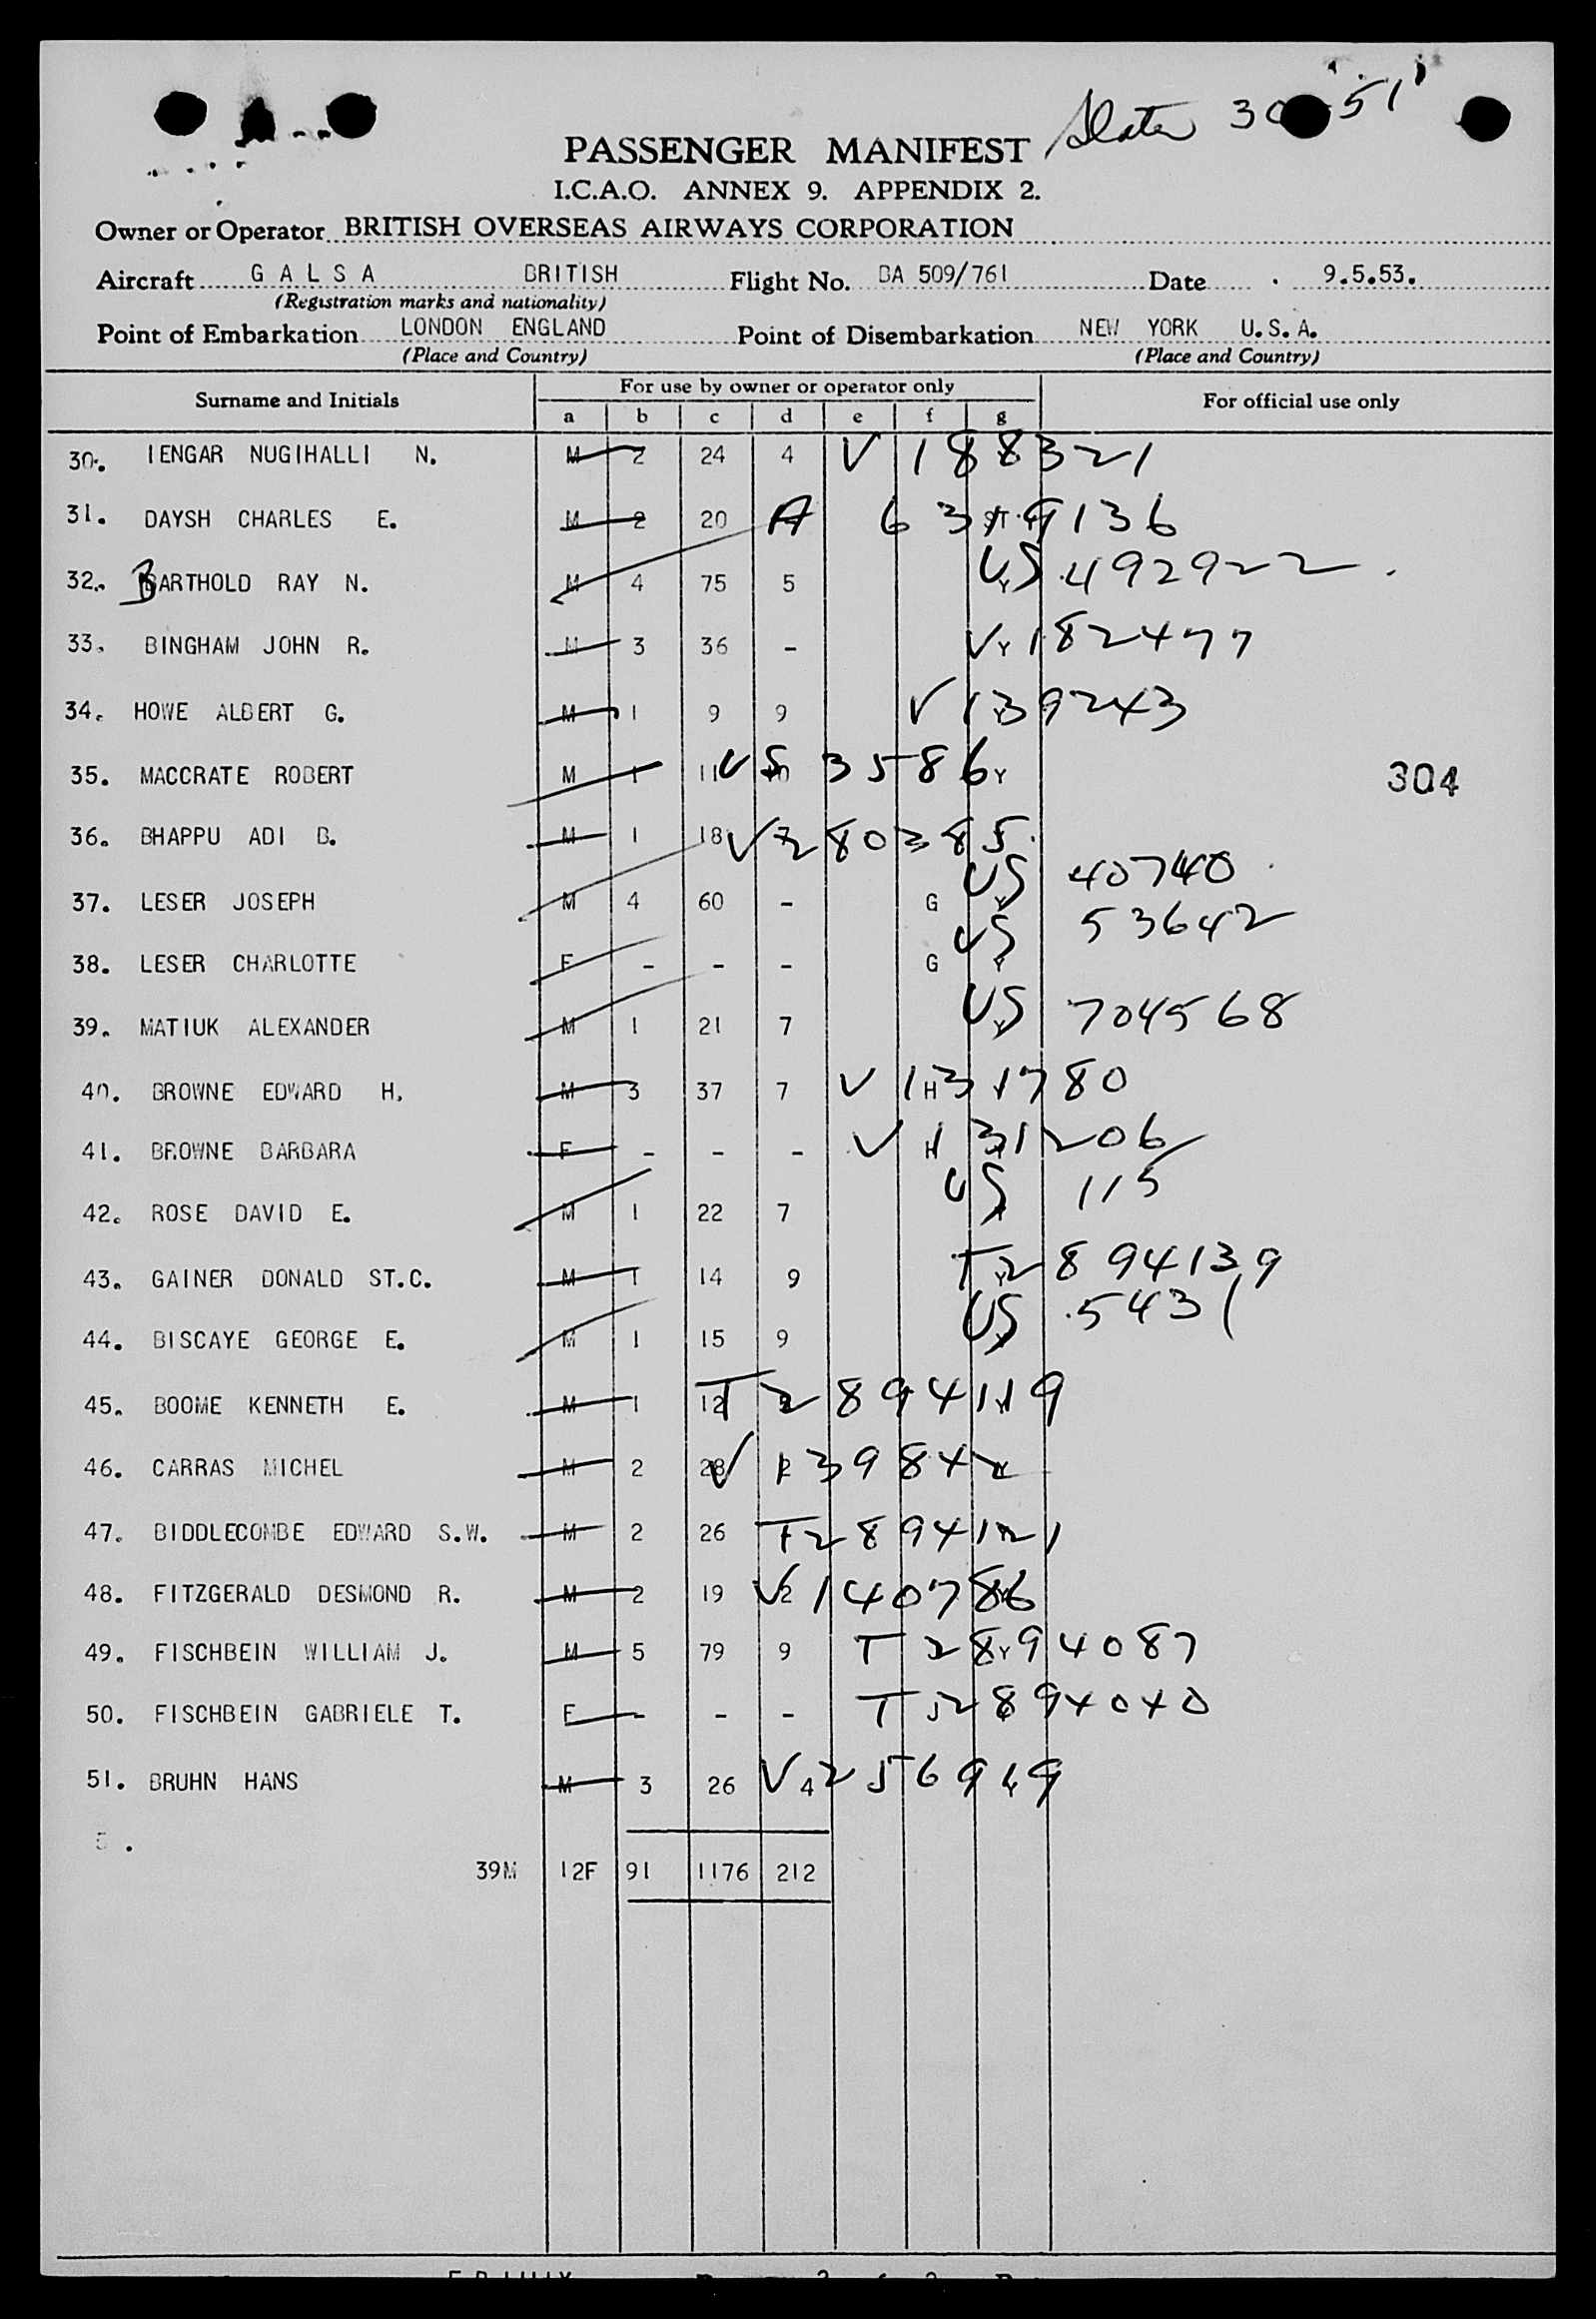 Slater 30 51
PASSENGER MANIFEST
I.C.A.O. ANNEX 9. APPENDIX 2.
Owner or Operator BRITISH OVERSEAS AIRWAYS CORPORATION
Aircraft G A L S A BRITISH Flight No. BA 509/761 Date 9.5.53.
(Registration marks and nationality)
Point of Embarkation LONDON ENGLAND Point of Disembarkation NEW YORK U.S.A.
(Place and Country) (Place and Country)
Surname and Initials For use by owner or operator only For official use only
a b c d e f g
30. IENGAR NUGIHALLI N. M 2 24 4 V 188321
31. DAYSH CHARLES E. M 2 20 A 6349136
32. BARTHOLD RAY N. M 4 75 5 Y US 492922
33. BINGHAM JOHN R. M 3 36 - Y V 182477
34. HOWE ALBERT G. M 1 9 9 V 139243
35. MACCRATE ROBERT M 1 11 10 Y US 3586
304
36. BHAPPU ADI B. M 1 18 V 280385
37. LESER JOSEPH M 4 60 - G Y US 40740
38. LESER CHARLOTTE F - - - G Y US 53642
39. MATIUK ALEXANDER M 1 21 7 Y US 704568
40. BROWNE EDWARD H. M 3 37 7 H V 131780
41. BROWNE BARBARA F - - - H V 131206
42. ROSE DAVID E. M 1 22 7 US 115
43. GAINER DONALD ST.C. M 1 14 9 Y T 2894139
44. BISCAYE GEORGE E. M 1 15 9 US 5431
45. BOOME KENNETH E. M 1 12 T 2894119
46. CARRAS MICHEL M 2 28 2 V 139842
47. BIDDLECOMBE EDWARD S.W. M 2 26 T 2894121
48. FITZGERALD DESMOND R. M 2 19 2 V 140786
49. FISCHBEIN WILLIAM J. M 5 79 9 Y T 2894087
50. FISCHBEIN GABRIELE T. F - - - T 2894040
51. BRUHN HANS M 3 26 4 Y V 256949
39M 12F 91 1176 212